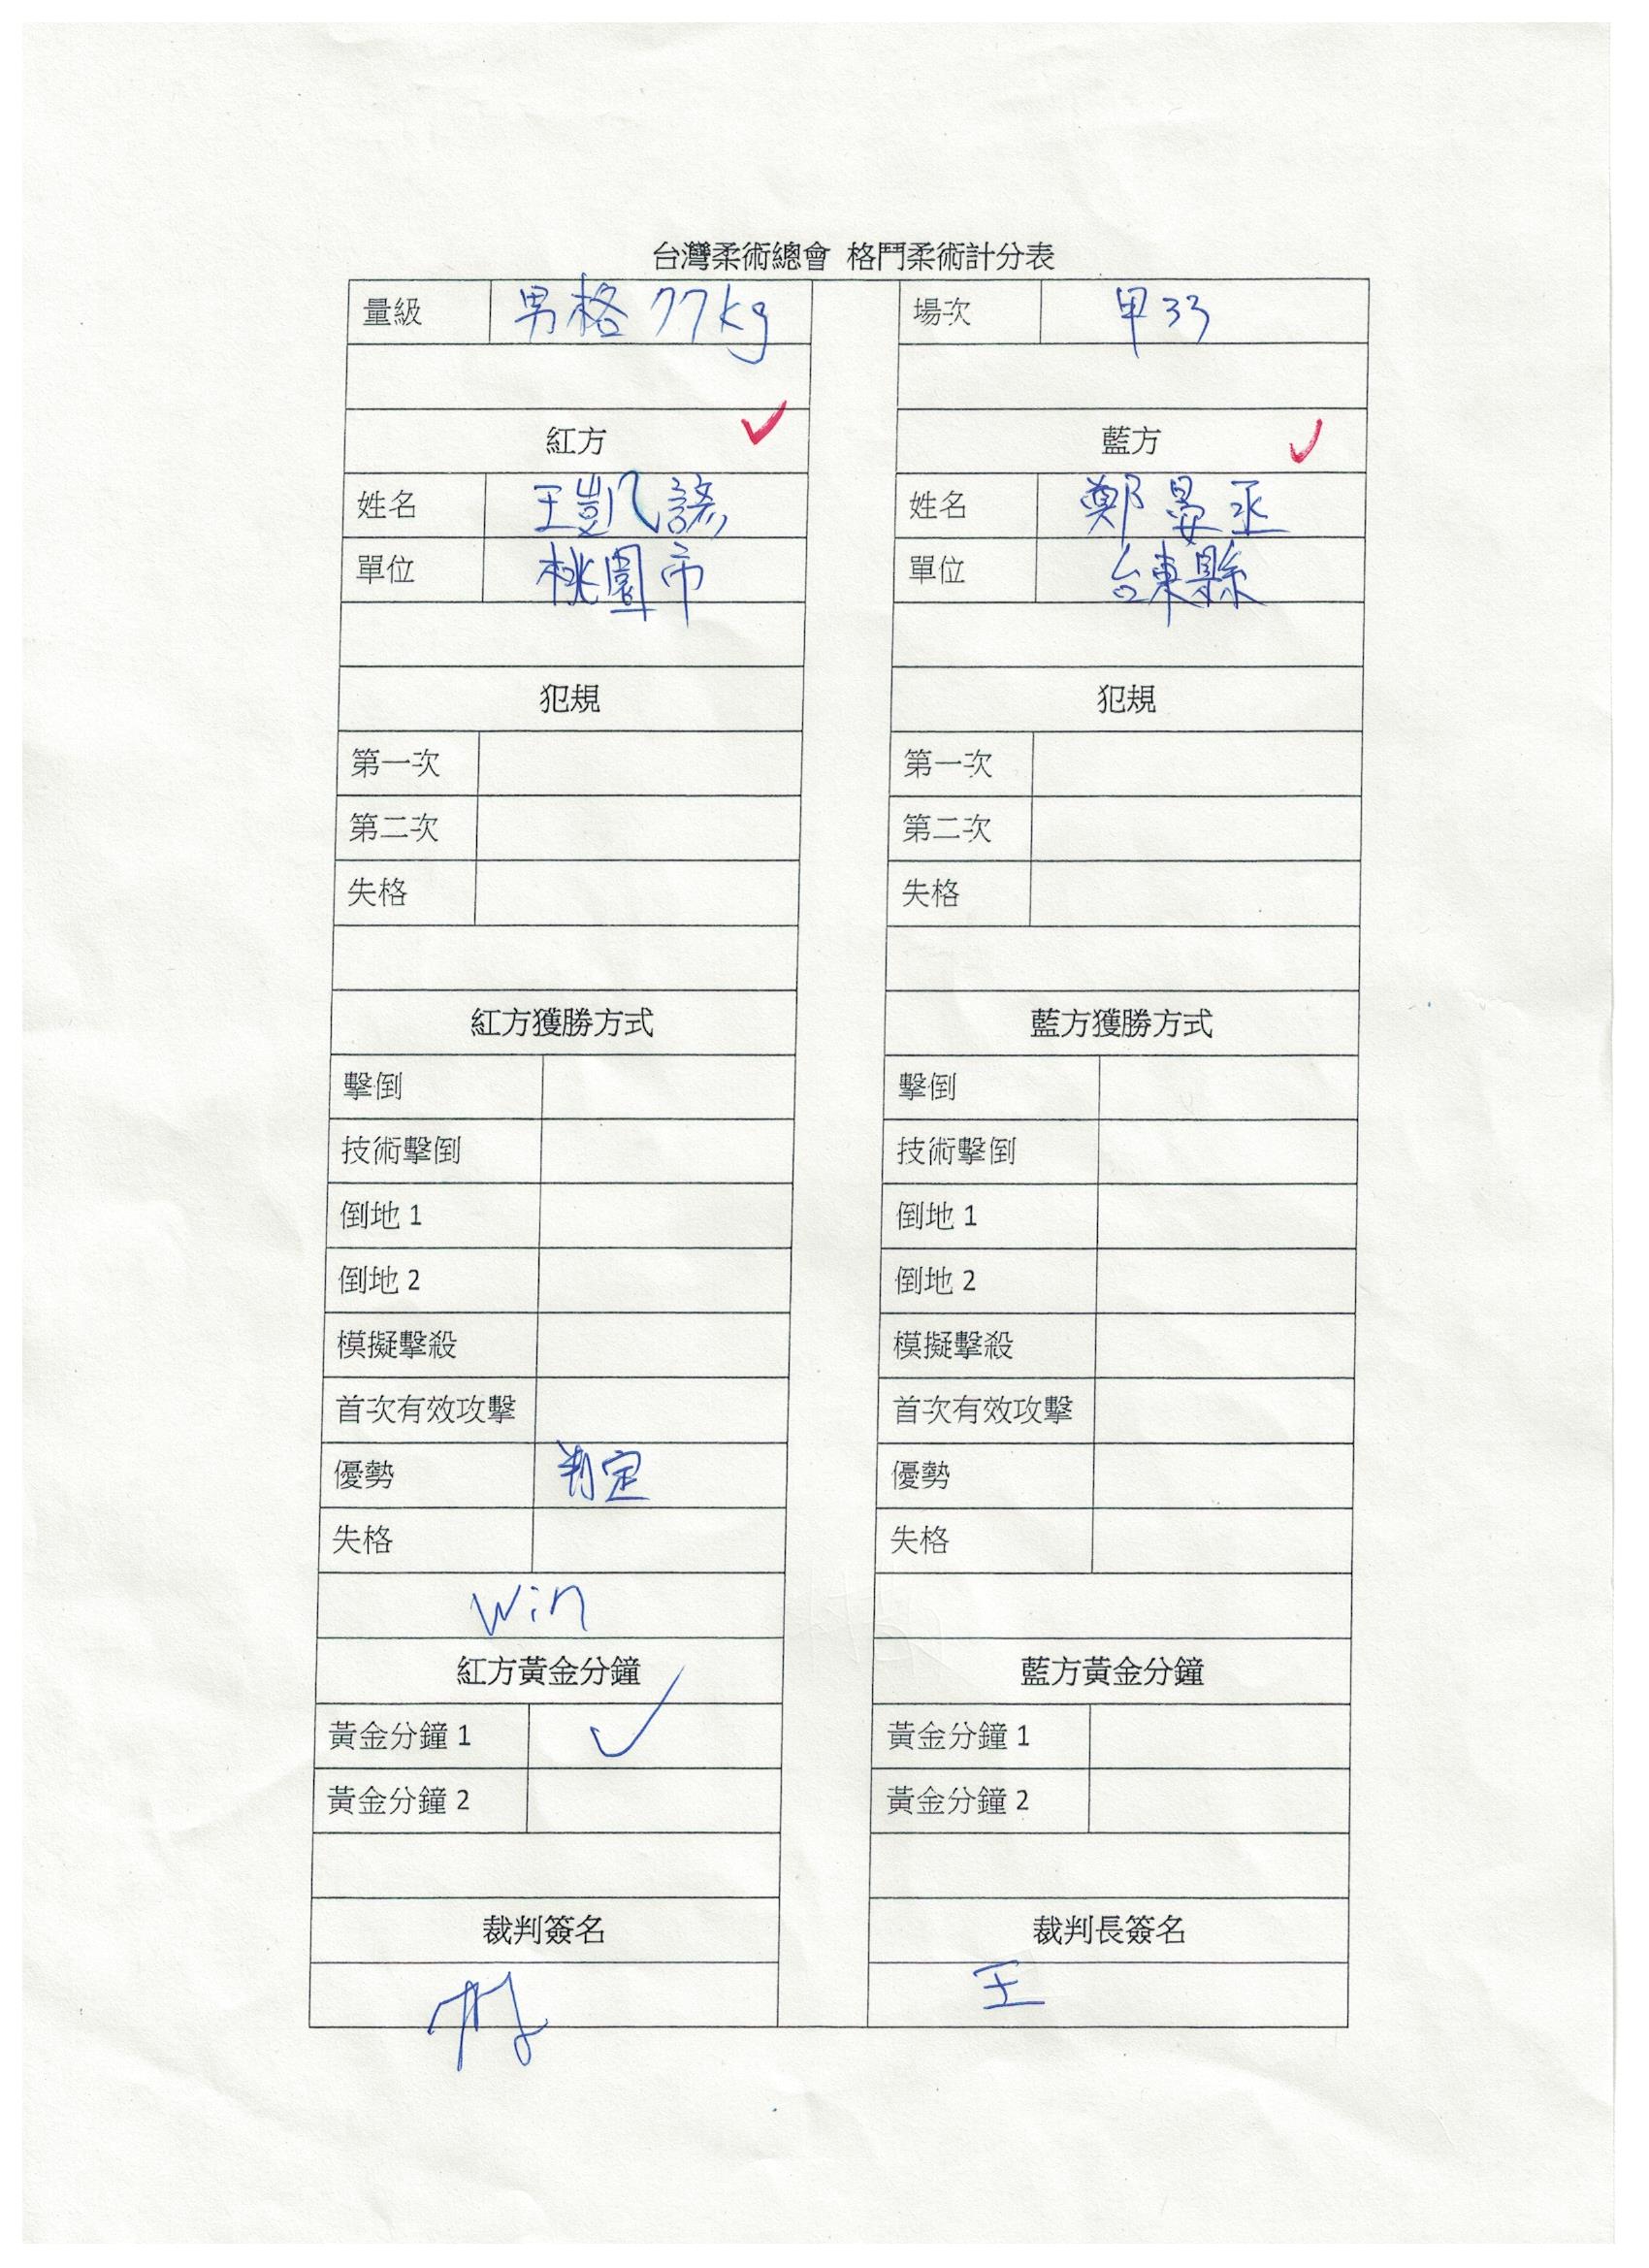 台灣柔術總會 格鬥柔術計分表
量級 男格 77kg 場次 甲33
紅方 藍方
姓名 王凱 姓名 鄭晏丞
單位 桃園市 單位 台東縣
犯規 犯規
第一次 第一次
第二次 第二次
失格 失格
紅方獲勝方式 藍方獲勝方式
擊倒 擊倒
技術擊倒 技術擊倒
倒地 1 倒地 1
倒地 2 倒地 2
模擬擊殺 模擬擊殺
首次有效攻擊 首次有效攻擊
優勢 判定 優勢
失格 失格
Win
紅方黃金分鐘 藍方黃金分鐘
黃金分鐘 1 黃金分鐘 1
黃金分鐘 2 黃金分鐘 2
裁判簽名 裁判長簽名
王